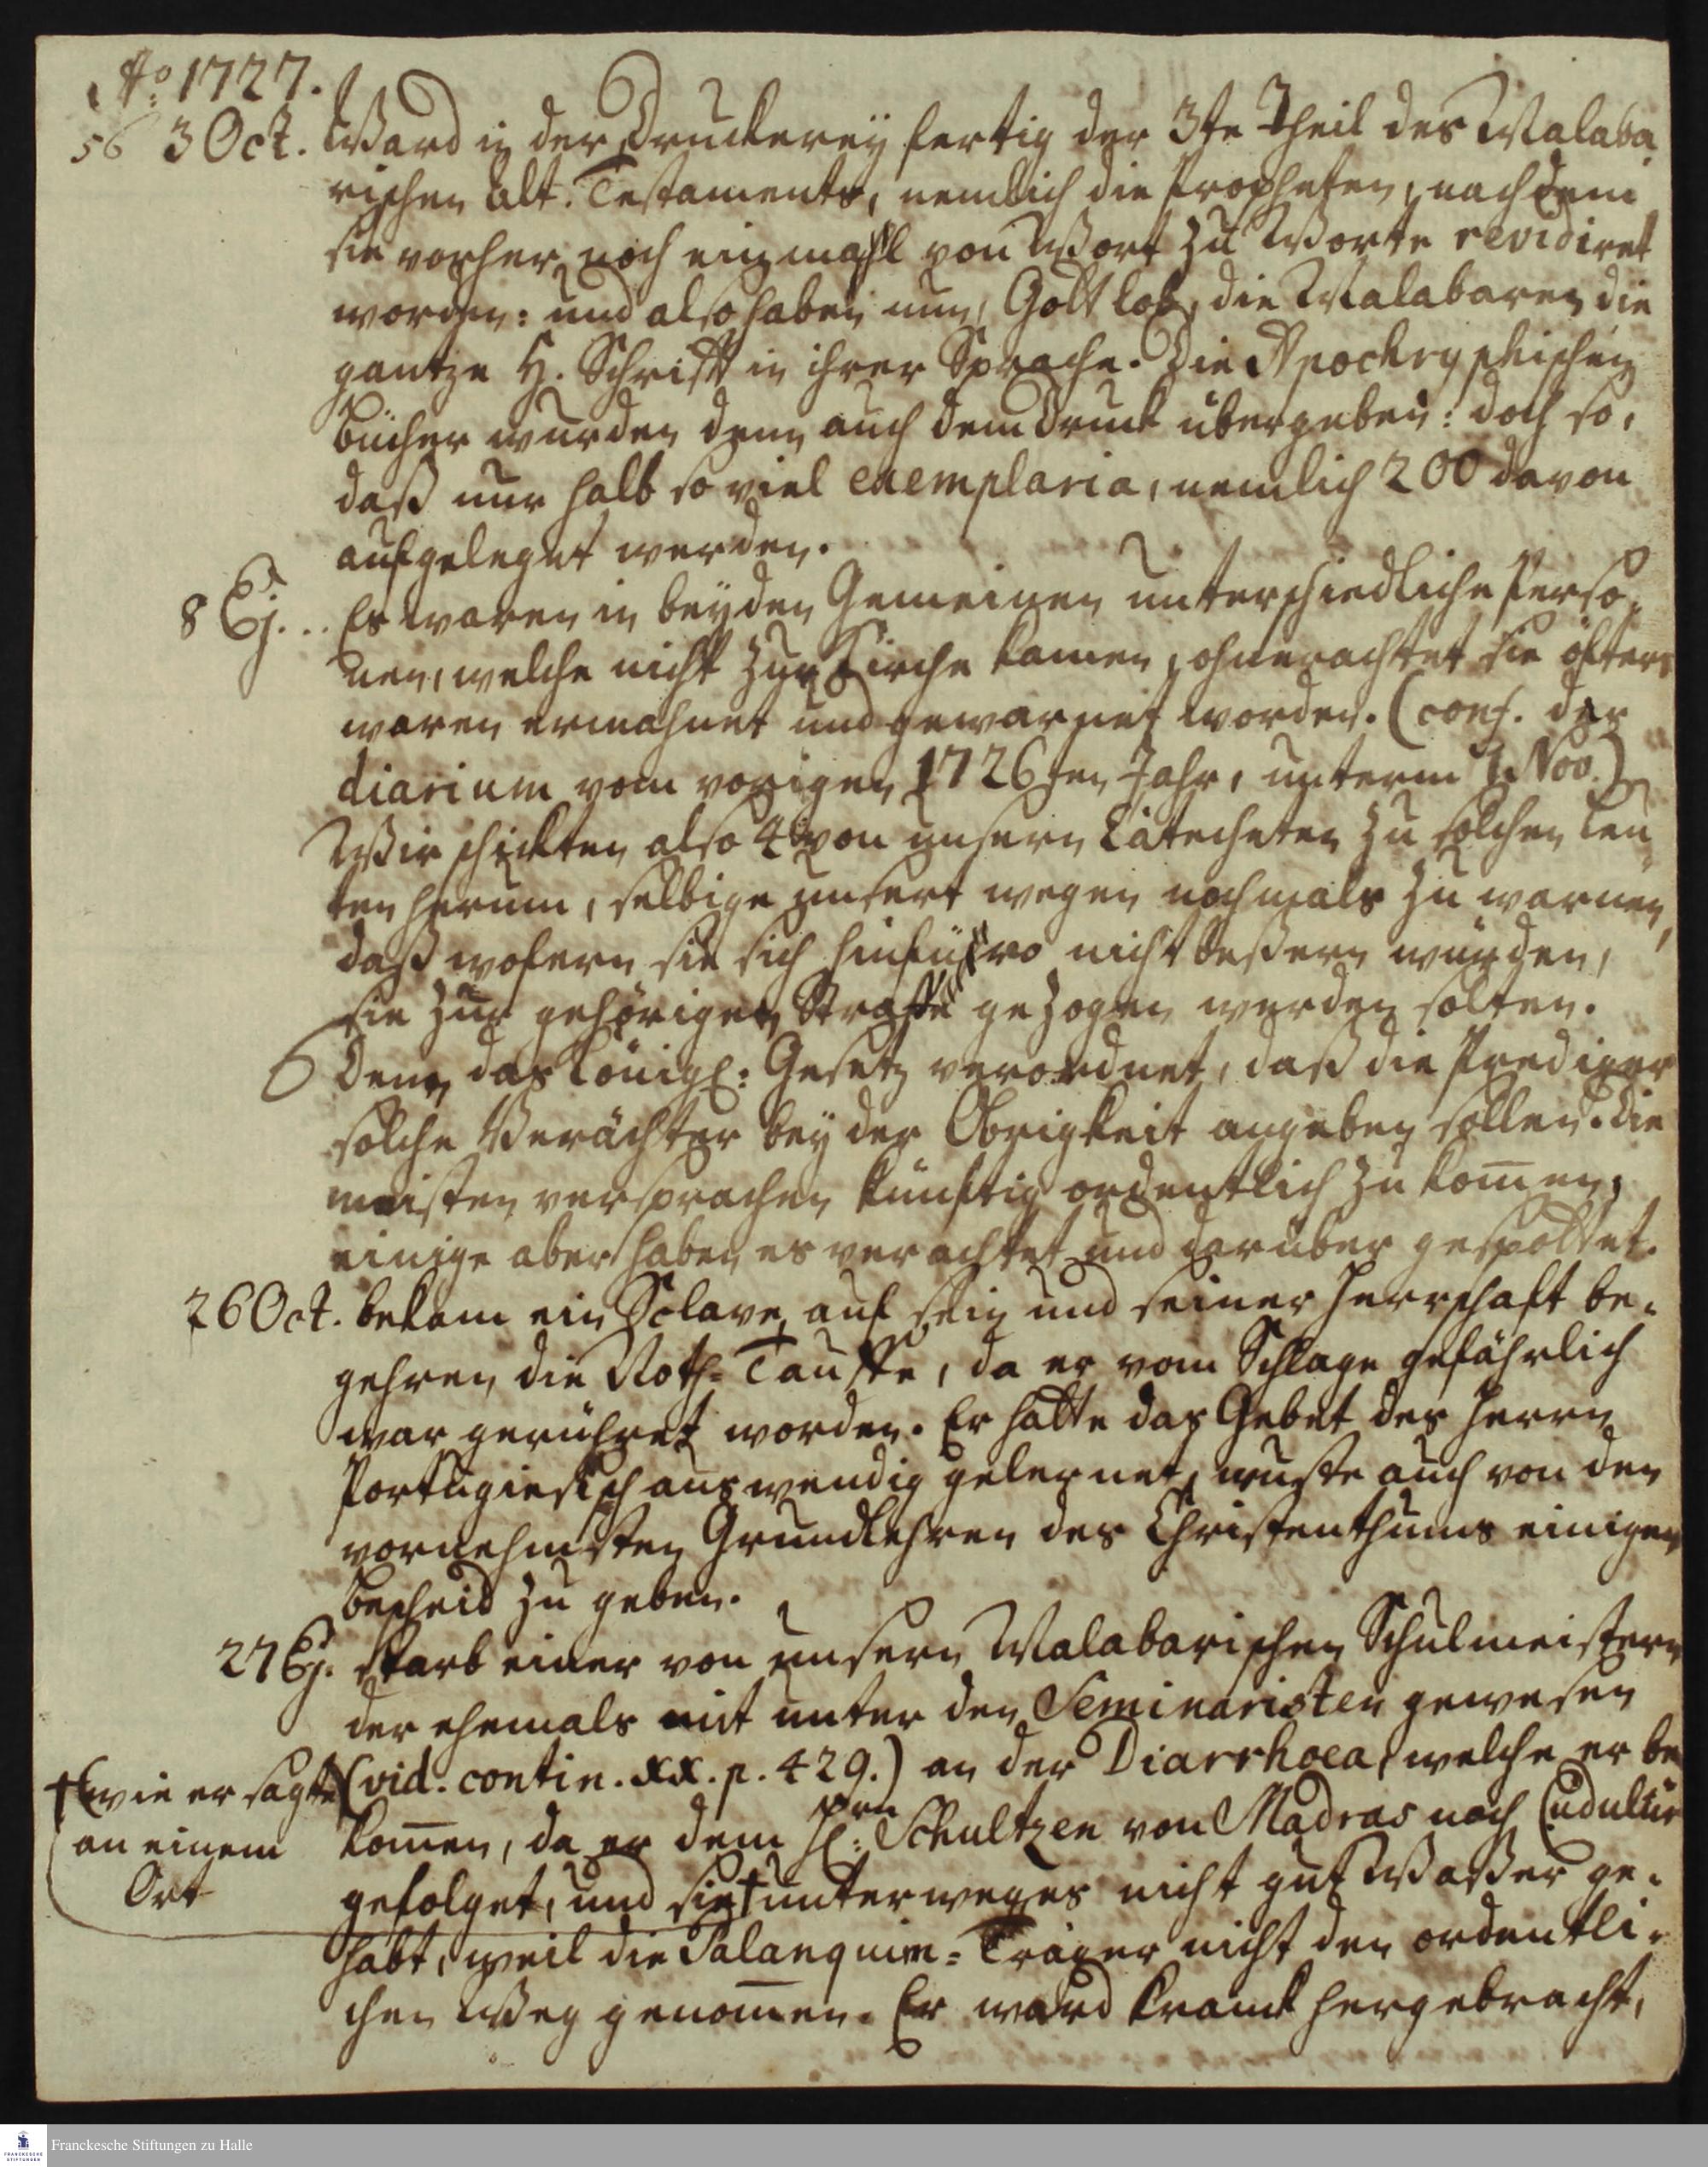 Ao: 1727.
56 3 Oct. Ward in der Druckerey fertig der 3te Theil des Malaba-
rischen Alt. Testaments, nemlich die Propheten, nachdem
sie vorher noch einmahl von Wort zu Worte revidiret
worden: und also haben nun, Gott lob, die Malabaren die
gantze H. Schrifft in ihrer Sprache. Die Apocryphischen
Bücher wurden denn auch dem Druck übergeben: doch so,
daß nur halb so viel exemplaria, nemlich 200 davon
aufgeleget werden.
8 Ej. .. Es waren in beyden Gemeinen unterschiedliche Perso-
nen, welche nicht zur Kirche kamen, ohnerachtet sie öfters
waren ermahnet und gewarnet worden. (conf. der
diarium vom vorigen 1726ten Jahr, unterm 1 Nov.)
Wir schickten also 4 von unsern Catecheten zu solchen Leu-
ten herum, selbige unsert wegen nochmals zu warnen,
daß wofern sie sich hinführo nicht beßern würden,
sie zur gehörigen Straffe gezogen werden solten.
Denn das Königl: Gesetz verordnet, daß die Prediger
solche Verächter bey der Obrigkeit angeben sollen. Die
meisten versprachen künftig ordentlich zu kom̅en;
einige aber haben es verachtet und darüber gespottet.
26 Oct. bekam ein Sclave auf sein und seiner Herrschaft be-
gehren die Noth-Tauffe, da er vom Schlage gefährlich
war gerühret worden. Er hatte das Gebet des Herrn
Portugiesisch auswendig gelernet, wuste auch von den
vornehmsten Grundlehren des Christenthums einigen
Bescheid zu geben.
27 Ej. starb einer von unsern Malabarischen Schulmeistern
der ehemals mit unter den Seminaristen gewesen
(vid. contin. XX. p. 429.) an der Diarrhoea, welche er be
kom̅en, da er dem Hrn Schultzen von Madras nach Cudulur
gefolget, und sie † unterweges nicht gut Waßer ge-
habt, weil die Palanquim-Träger nicht den ordentli-
chen Weg genom̅en. Er ward kranck hergebracht,
† wie er sagte
an einem
Ort
Franckesche Stiftungen zu Halle
FRANCKESCHE
STIFTUNGEN